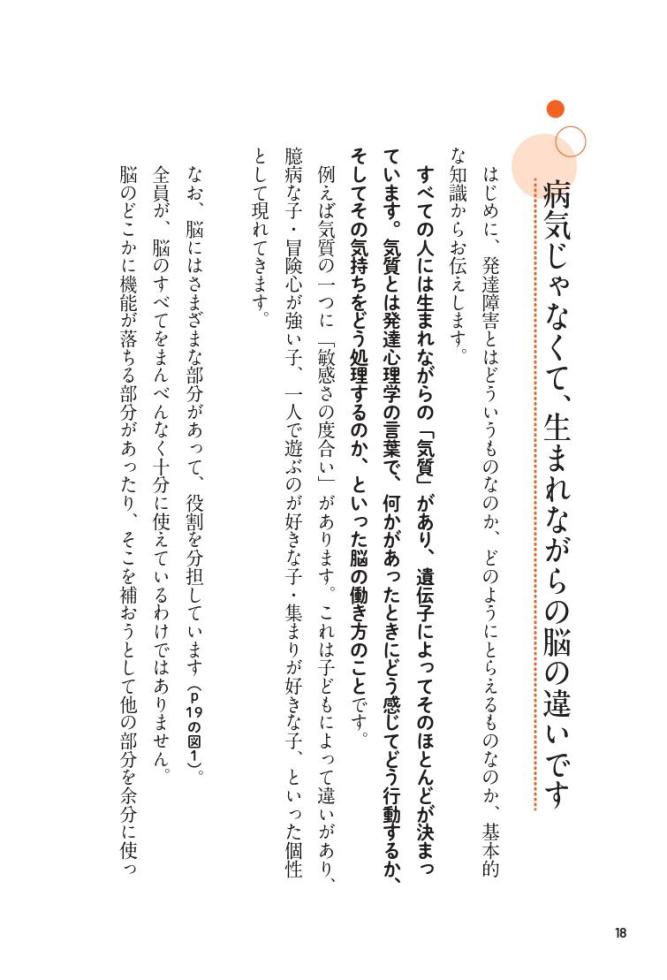 病気じゃなくて、生まれながらの脳の違いです
はじめに、発達障害とはどういうものなのか、どのようにとらえるものなのか、基本的
な知識からお伝えします。
すべての人には生まれながらの「気質」があり、遺伝子によってそのほとんどが決まっ
ています。気質とは発達心理学の言葉で、何かがあったときにどう感じてどう行動するか、
そしてその気持ちをどう処理するのか、といった脳の働き方のことです。
例えば気質の一つに「敏感さの度合い」があります。これは子どもによって違いがあり、
臆病な子・冒険心が強い子、一人で遊ぶのが好きな子・集まりが好きな子、といった個性
として現れてきます。
なお、脳にはさまざまな部分があって、役割を分担しています（p19の図1）。
全員が、脳のすべてをまんべんなく十分に使えているわけではありません。
脳のどこかに機能が落ちる部分があったり、そこを補おうとして他の部分を余分に使っ
18